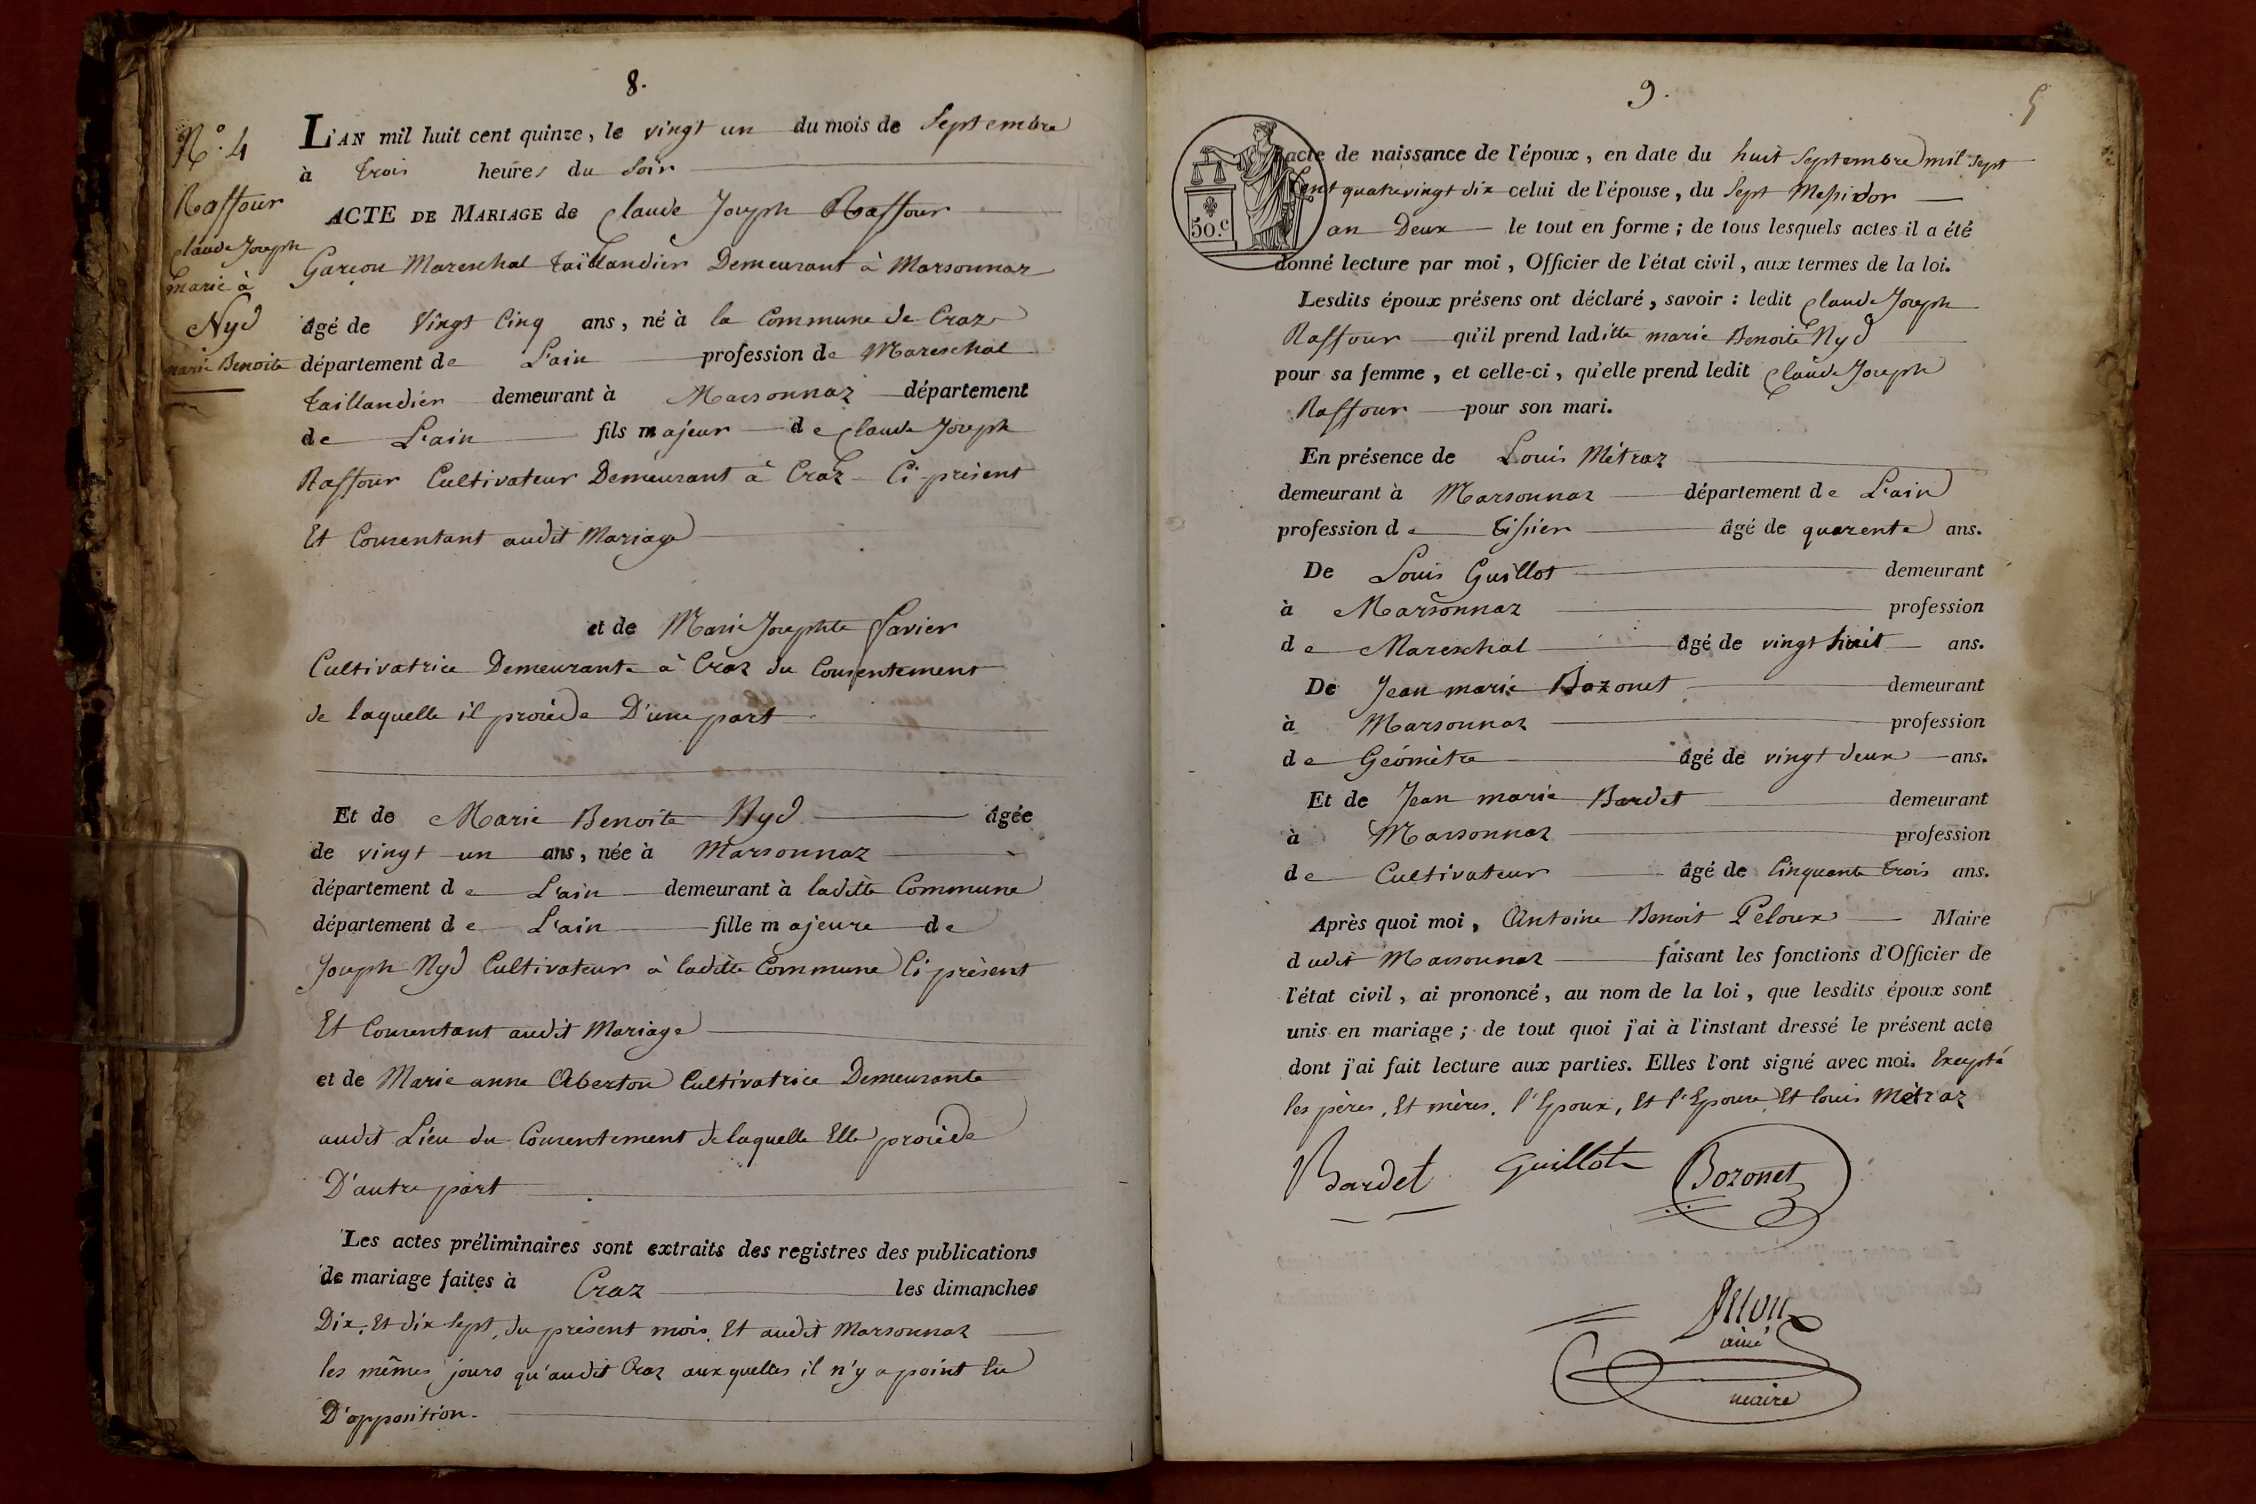 8.
N.° 4
Raffour
Claude Joseph
marié à
Nyd
marie Benoite
L'AN mil huit cent quinze, le vingt un du mois de Septembre
à trois heures du Soir
ACTE DE MARIAGE de Claude Joseph Raffour
Garçon Mareschal taillandier Demeurant à Marsonnaz
âgé de Vingt Cinq ans, né à la Commune de Craz
département de L'ain profession de Mareschal
taillandier demeurant à Marsonnaz département
de L'ain fils majeur de Claude Joseph
Raffour Cultivateur Demeurant à Craz Ci-présent
Et Consentant audit Mariage
et de Marie Josephte Favier
Cultivatrice Demeurante à Craz du Consentement
de laquelle il procède D'une part
Et de Marie Benoite Nyd âgée
de vingt un ans, née à Marsonnaz
département de L'ain demeurant à laditte Commune
département de L'ain fille majeure de
Joseph Nyd Cultivateur à laditte Commune Ci présent
Et Consentant audit Mariage
et de Marie anne Oberton Cultivatrice Demeurante
audit Lieu du Consentement de laquelle Elle procède
D'autre part
Les actes préliminaires sont extraits des registres des publications
de mariage faites à Craz les dimanches
Dix, Et dix Sept, du présent mois, Et audit Marsonnaz
les mêmes jours qu'audit Craz auxquelles il n'y a point Eu
D'opposition.
9.
5
50.c
acte de naissance de l'époux, en date du huit Septembre mil Sept
Cent quatrevingt dix celui de l'épouse, du Sept Messidor
an Deux le tout en forme; de tous lesquels actes il a été
donné lecture par moi, Officier de l'état civil, aux termes de la loi.
Lesdits époux présens ont déclaré, savoir : ledit Claude Joseph
Raffour qu'il prend laditte marie Benoite Nyd
pour sa femme, et celle-ci, qu'elle prend ledit Claude Joseph
Raffour pour son mari.
En présence de Louis Métraz
demeurant à Marsonnaz département de L'ain
profession de tissier âgé de quarente ans.
De Louis Guillot demeurant
à Marsonnaz profession
de Mareschal âgé de vingt huit ans.
De Jean marie Bozonet demeurant
à Marsonnaz profession
de Géomètre âgé de vingt deux ans.
Et de Jean marie Bardet demeurant
à Marsonnaz profession
de Cultivateur âgé de Cinquante trois ans.
Après quoi moi, Antoine Benoit Peloux Maire
dudit Marsonnaz faisant les fonctions d'Officier de
l'état civil, ai prononcé, au nom de la loi, que lesdits époux sont
unis en mariage; de tout quoi j'ai à l'instant dressé le présent acte
dont j'ai fait lecture aux parties. Elles l'ont signé avec moi. Excepté
les pères, Et mères, l'Epoux, Et l'Epouse Et Louis Métraz
Bardet Guillot Bozonet
ainé
maire